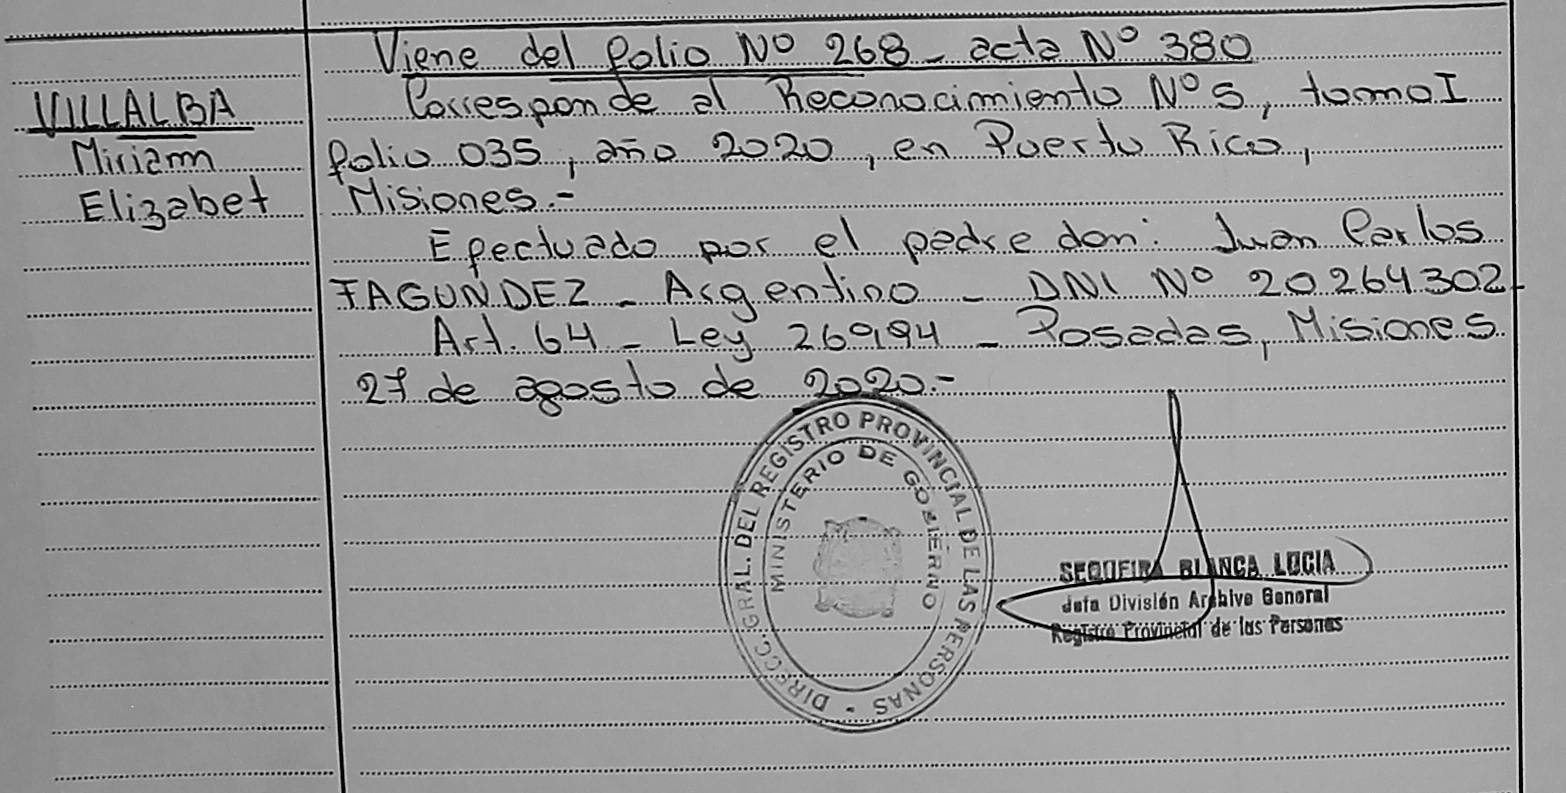 Viene del folio Nº 268 - acta Nº 380
VILLALBA
Miriam
Elizabet
Corresponde al Reconocimiento Nº 5, tomo I
folio 035, año 2020, en Puerto Rico,
Misiones.-
Efectuado por el padre don: Juan Carlos
FAGUNDEZ - Argentino - DNI Nº 20264302-
Art. 64 - Ley 26994 - Posadas, Misiones
27 de agosto de 2020.-
DIRECC. GRAL. DEL REGISTRO PROVINCIAL DE LAS PERSONAS
MINISTERIO DE GOBIERNO
SEQUEIRA BLANCA LUCIA
Jefa División Archivo General
Registro Provincial de las Personas